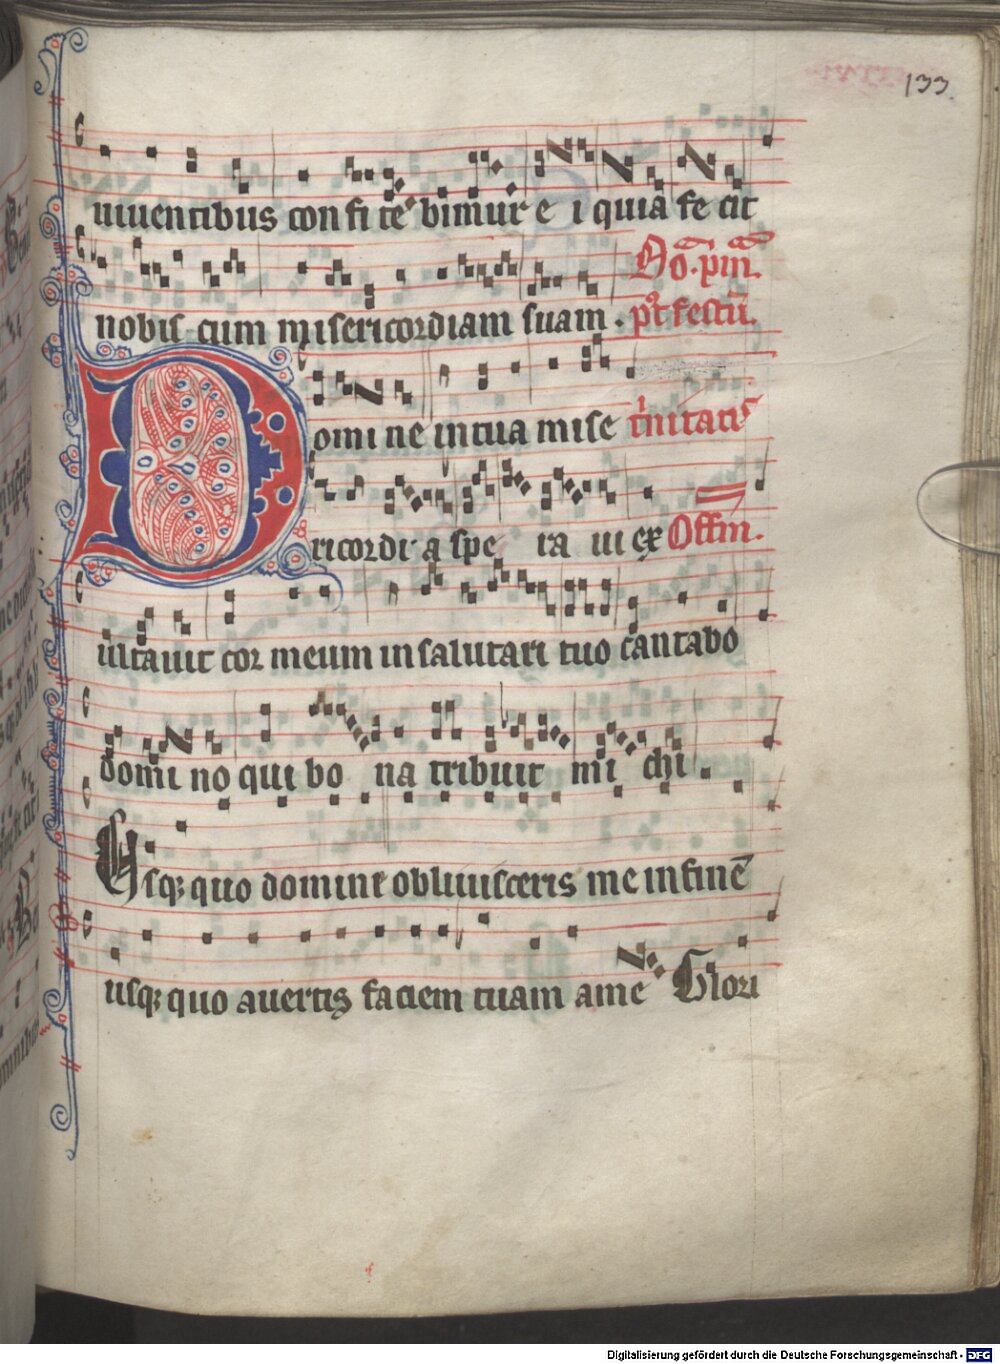 133.
uiuentibus confitebimur ei quia fecit
nobis cum misericordiam suam. Dõ. prim̃.
post festũ.
Domine in tua mise trinitatis
ricordia spe ra ui ex Offm̃.
ultauit cor meum in salutari tuo cantabo
domino qui bona tribuit michi.
Usqꝫ quo domine obliuisceris me in finẽ
usqꝫ quo auertis faciem tuam a me Glori
Digitalisierung gefördert durch die Deutsche Forschungsgemeinschaft - DFG